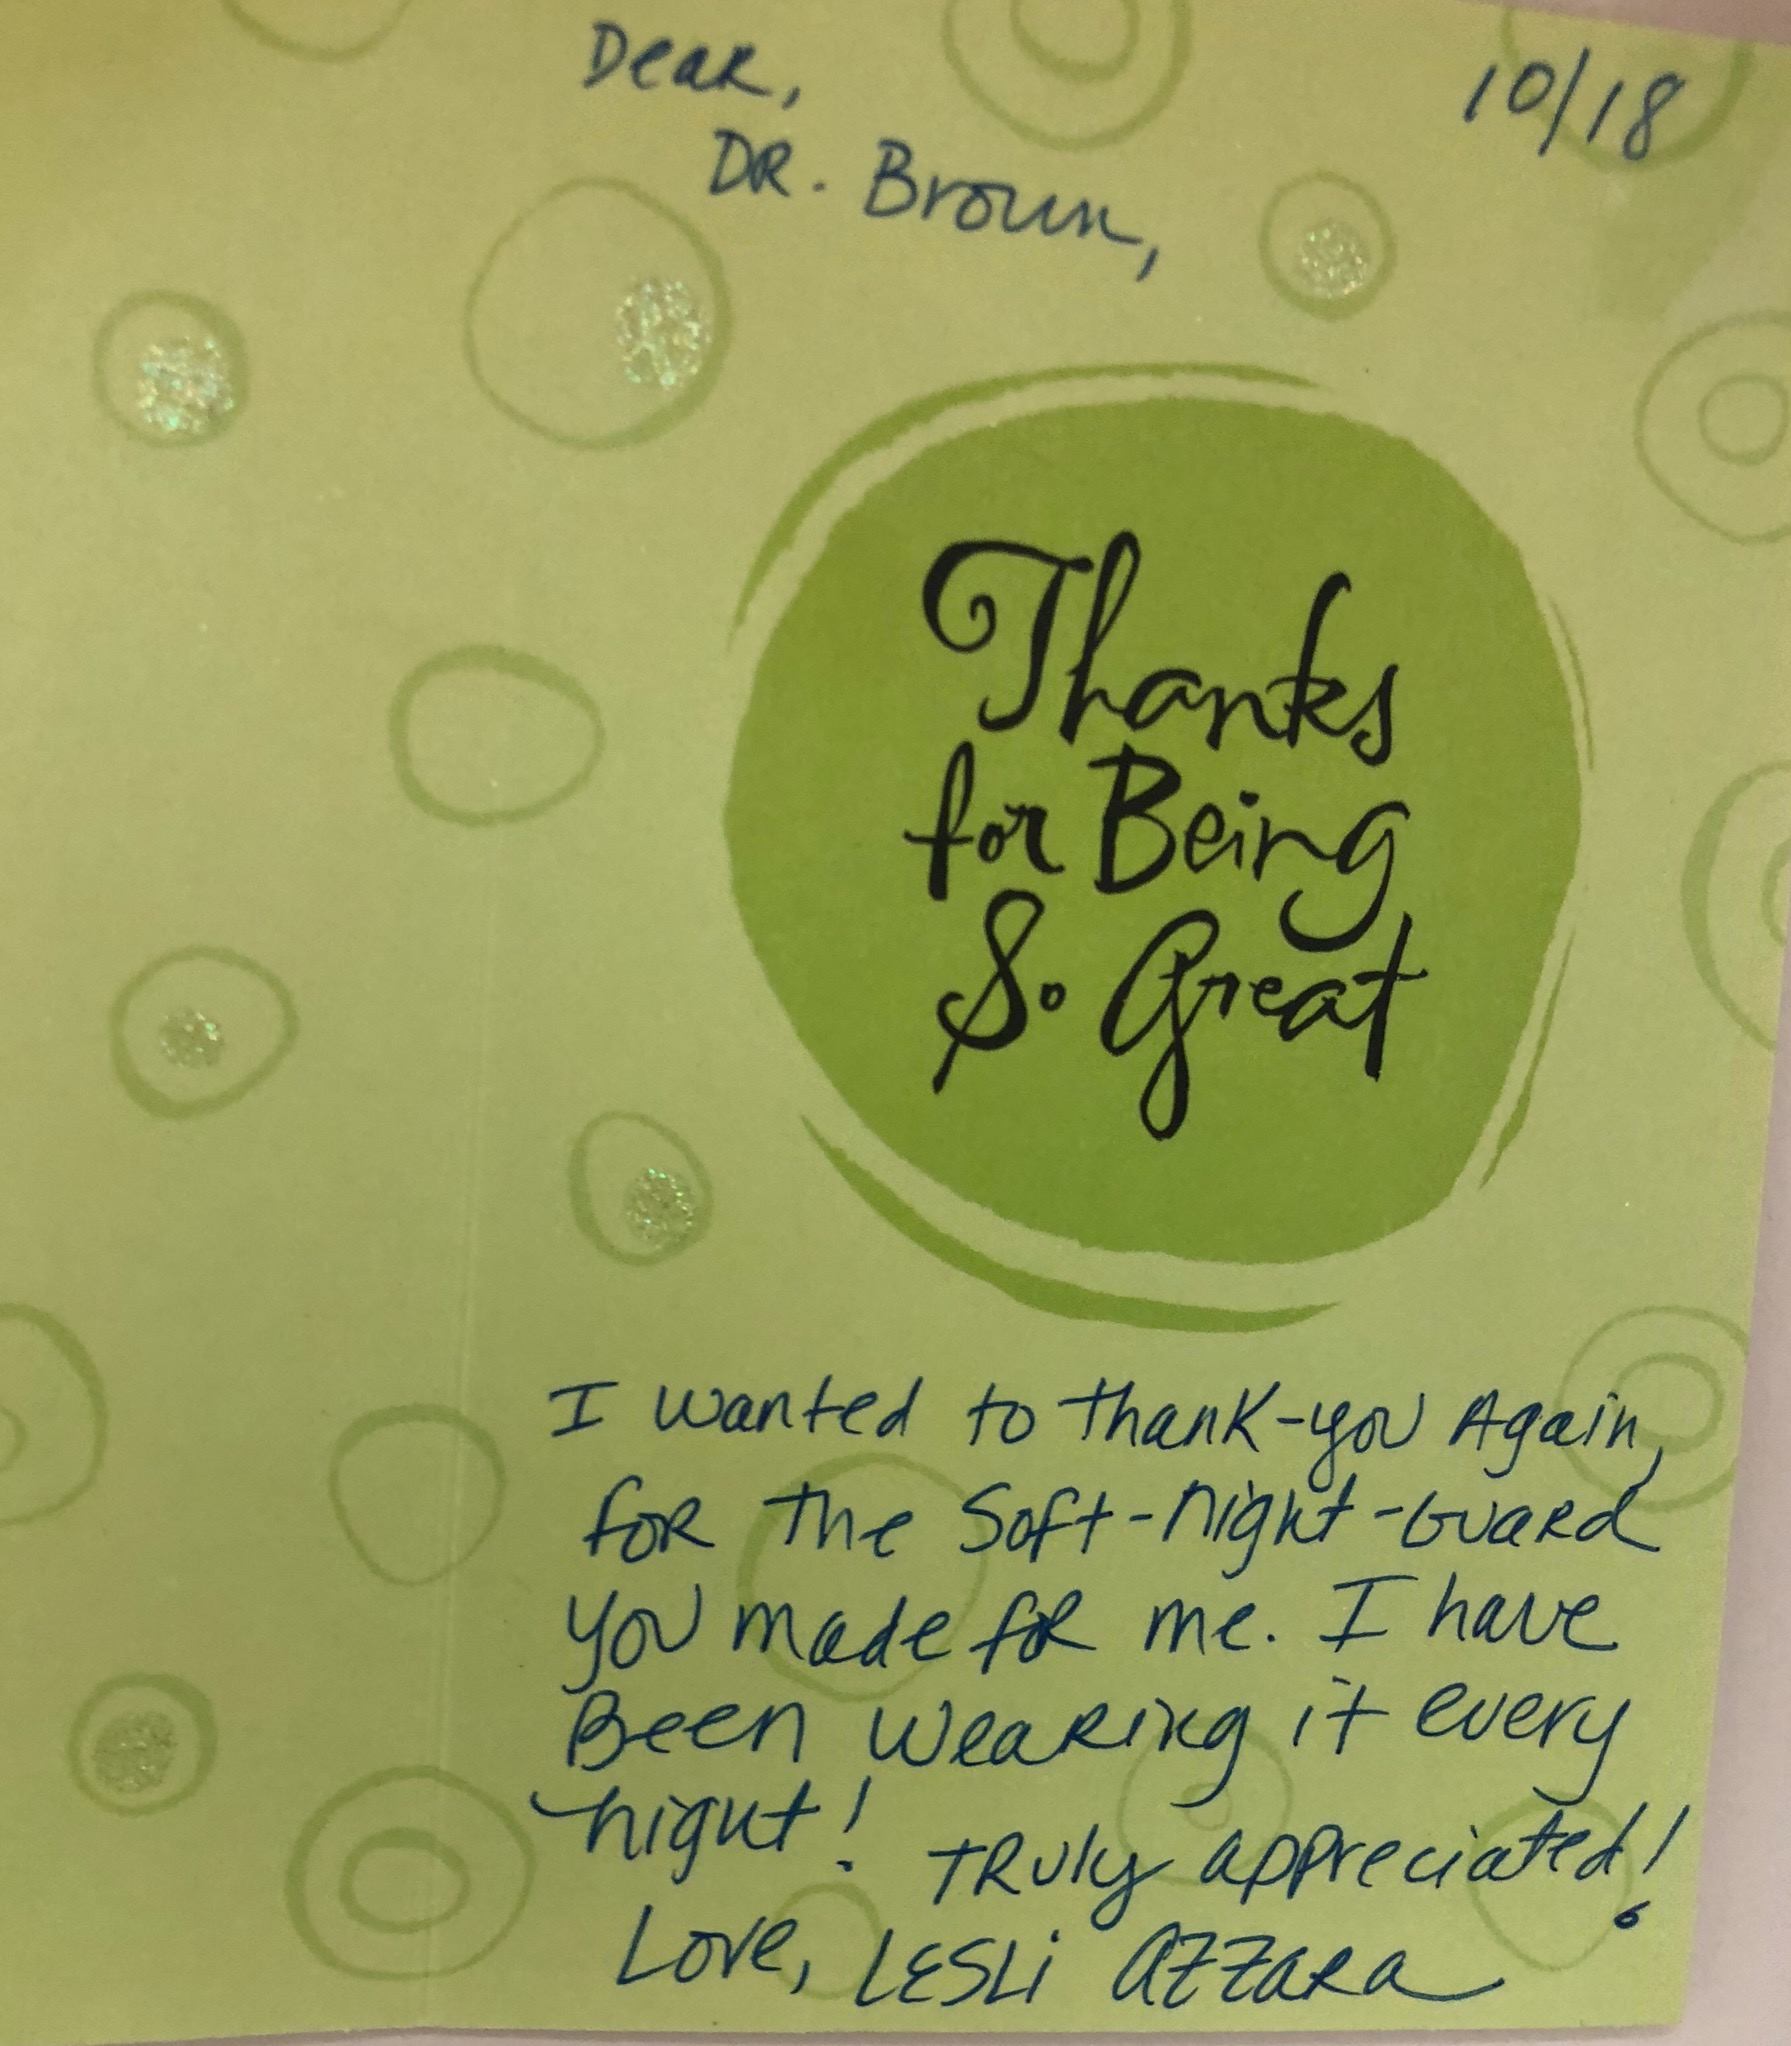 Dear,
10/18
DR. Brown,
Thanks
for Being
So Great
I wanted to thank-you Again,
for the Soft-night-Guard
you made for me. I have
Been wearing it every
night!
Truly appreciated!
Love, LESLi AZZARA